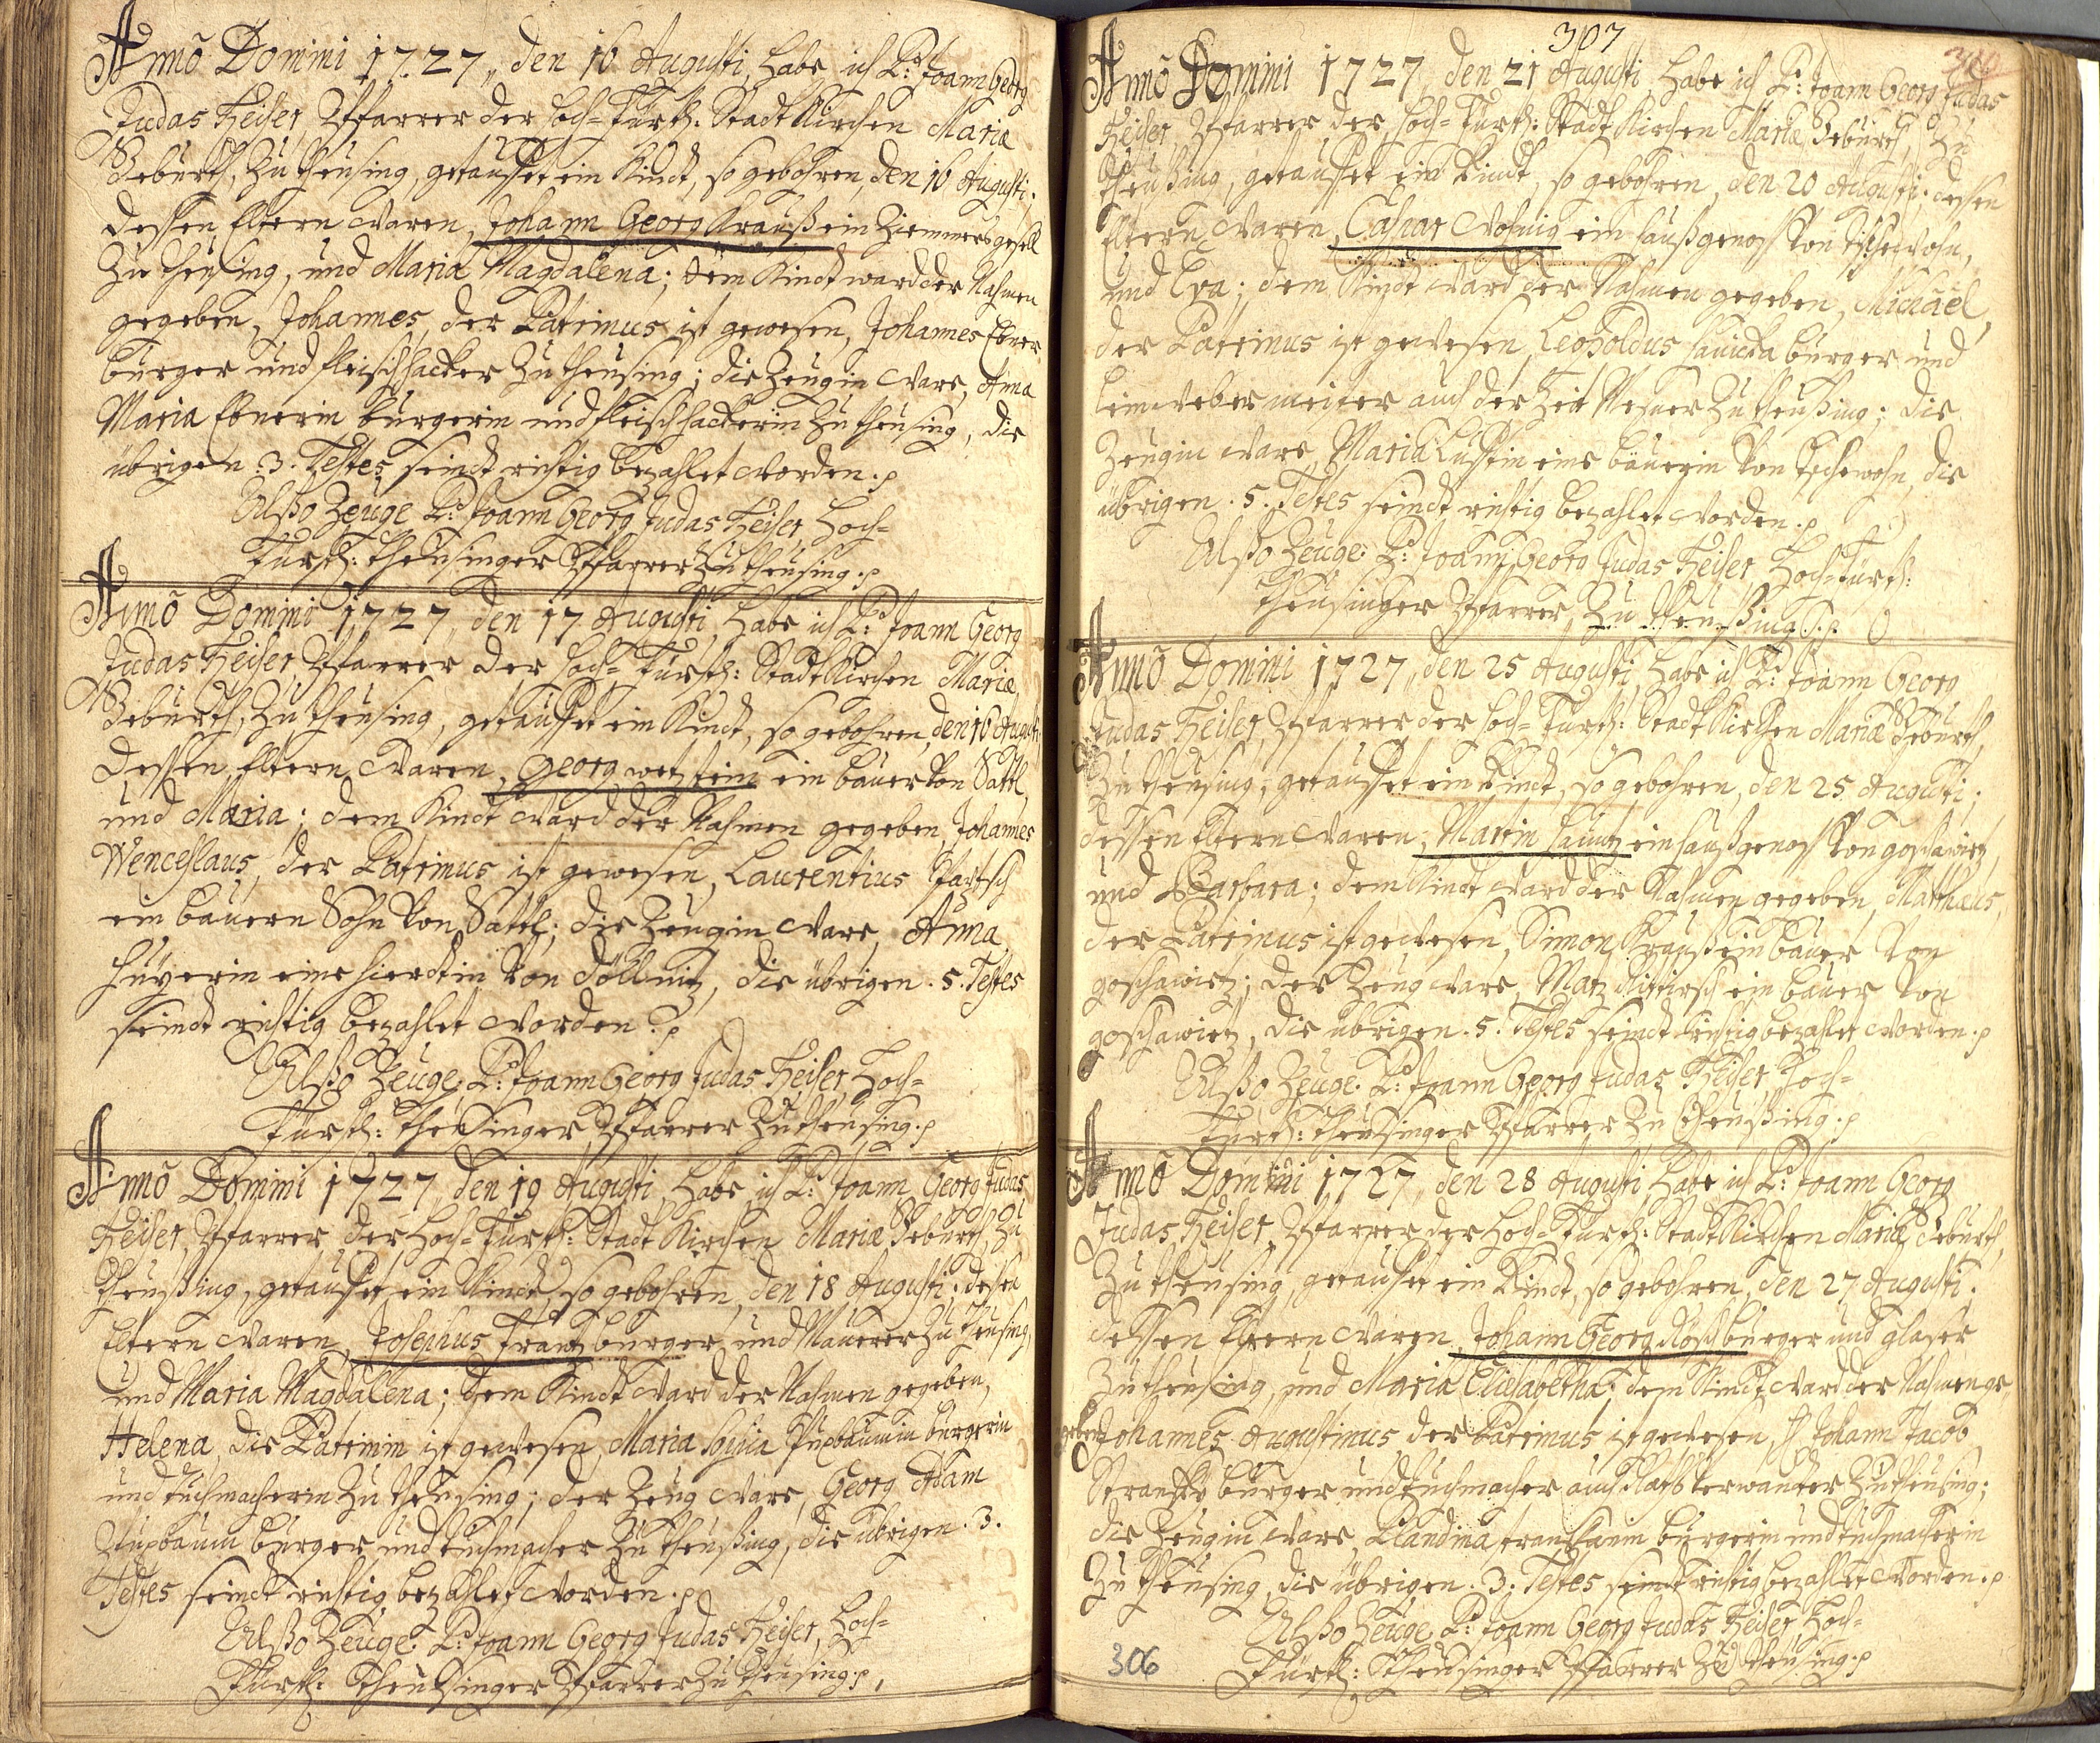 Anno Domini 1727, den 16 Augusti, habe ich P: Joann Georg
Judas Heiser, Pfarrer der Hoch-Fürstl: Stadt Kirchen Mariæ
Geburth, zu theusing, getauffet ein Kindt, so gebohren, den 16 Augusti.
dessen Eltern waren, Johann Georg Krauß ein Ziemmersgesell
zu theusing, und Maria Magdalena; dem Kindt ward der Nahmen
gegeben, Johannes, der Patrinus ist gewesen, Johannes Ebner
burger und fleischhacker zu theusing; die Zeugin ware, Anna
Maria Ebnerin burgerin und fleischhackerin zu theusing, die
übrigen .3. Testes seindt richtig bezahlet worden.
Alßo Zeuge P: Joann Georg Judas Heiser, Hoch-
Fürstl: theusinger Pfarrer zu theusing.
Anno Domini 1727, den 17 Augusti, habe ich P: Joann Georg
Judas Heiser Pfarrer der Hoch-Fürstl: Stadt Kirchen Mariæ
Geburth, zu theusing, getauffet ein Kindt, so gebohren, den 16 Augusti
dessen Eltern waren, Georg wetzstein ein bauer von Sattl,
und Maria; dem Kindt ward der Nahmen gegeben, Johannes
Wenceslaus, der Patrinus ist gewesen, Laurentius
ein bauern Sohn von Sattl; die Zeugin ware, Anna
eine hierdtin von döllnitz, die übrigen .5. Testes
seindt richtig bezahlet worden.
Alßo Zeuge. P: Joann Georg Judas Heiser, Hoch-
Fürstl: theusinger Pfarrer zu theusing.
Anno Domini 1727, den 19 Augusti, habe ich P: Joann Georg Judas
Heiser, Pfarrer der Hoch-Fürstl: Stadt Kirchen Mariæ Geburth, zu
theußing, getauffet ein Kindt, so gebohren, den 18 Augusti; dessen
Eltern waren, Josephus Frantz burger und Maurer zu theusing,
und Maria Magdalena; dem Kindt ward der Nahmen gegeben,
Helena, die Patrinin ist gewesen, Maria burgerin
und tuchmacherin zu theusing; der Zeug ware, Georg Adam
burger und tuchmacher zu theußing, die übrigen .3.
Testes seindt richtig bezahlet worden.
Alßo Zeuge. P: Joann Georg Judas Heiser, Hoch-
Fürstl: theusinger Pfarrer zu theusing.
307
Anno Domini 1727, den 21 Augusti, habe ich P: Joann Georg Judas
Heiser, Pfarrer der Hoch-Fürstl: Stadt Kirchen Mariæ Geburth, zu
theußing, getauffet ein Kindt, so gebohren, den 20 Augusti; dessen
Eltern waren, Caspar ein haußgenoss von
und Eva; dem Kindt ward der Nahmen gegeben, Michäel,
der Patrinus ist gewesen, Leopoldus burger und
leinweber meister auch der Zeit zu theußing; die
Zeugin ware, Maria eine bäuerin von die
übrigen .5. Testes seindt richtig bezahlet worden.
Alßo Zeuge. P: Joann Georg Judas Heiser, Hoch-Fürstl:
theusinger Pfarrer, zu theußing.
Anno Domini 1727, den 25 Augusti, habe ich P: Joann Georg
Judas Heiser, Pfarrer der Hoch-Fürstl: Stadt Kirchen Mariæ Geburth,
zu theusing, getauffet ein Kindt, so gebohren, den 25 Augusti;
dessen Eltern waren, Martin ein haußgenoss von goschawietz,
und Barbara; dem Kindt ward der Nahmen gegeben, Matthæus,
der Patrinus ist gewesen, Simon Krauß ein bauer von
goschawietz; der Zeug ware, Matz ein bauer von
goschawietz, die übrigen .5. Testes seindt richtig bezahlet worden.
Alßo Zeuge. P: Joann Georg Judas Heiser, Hoch-
Fürstl: theusinger Pfarrer zu theußing.
Anno Domini 1727, den 28 Augusti, habe ich P: Joann Georg
Judas Heiser, Pfarrer der Hoch-Fürstl: Stadt Kirchen Mariæ Geburth,
zu theusing, getauffet ein Kindt, so gebohren, den 27 Augusti.
dessen Eltern waren, Johann Georg Rösch burger und glaser
zu theusing, und Maria Elisabetha; dem Kindt ward der Nahmen ge
geben Johannes Augustinus, der Patrinus ist gewesen, H Johann Jacob
Stransky burger und tuchmacher auch Raths verwanter zu theusing;
die Zeugin ware, Blandina burgerin und tuchmacherin
zu theusing, die übrigen .3. Testes seindt richtig bezahlet worden.
Alßo Zeuge P: Joann Georg Judas Heiser Hoch-
Fürstl: theusinger Pfarrer zu theusing.
306